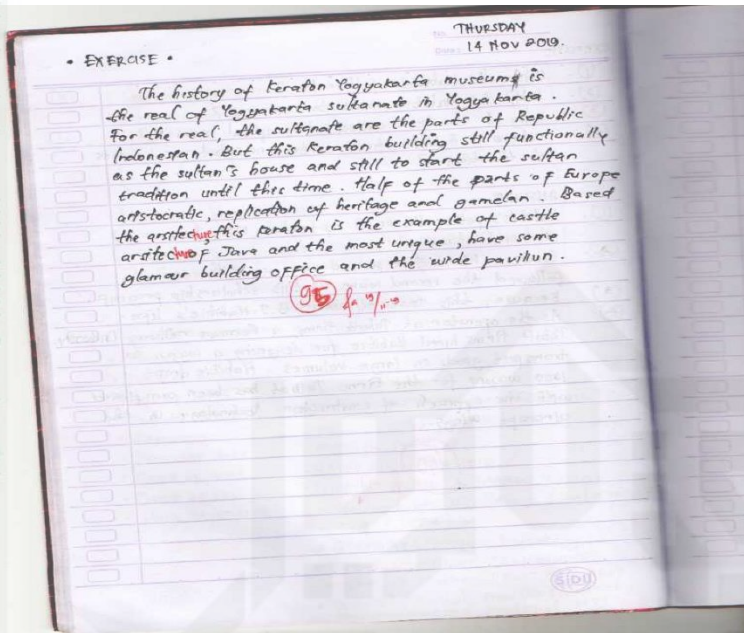 THURSDAY
14 NOV 2019.
• EXERCISE •
The history of keraton Yogyakarta museums is
the real of Yogyakarta sultanate in Yogyakarta.
For the real, the sultanate are the parts of Republic
Indonesian. But this keraton building still functionally
as the sultan's house and still to start the sultan
tradition until this time. Half of the parts of Europe
aristocratic, replication of heritage and gamelan. Based
the arsitecture, this keraton is the example of castle
arsitecture of Java and the most unique, have some
glamour building office and the wide paviliun.
95
SIDU